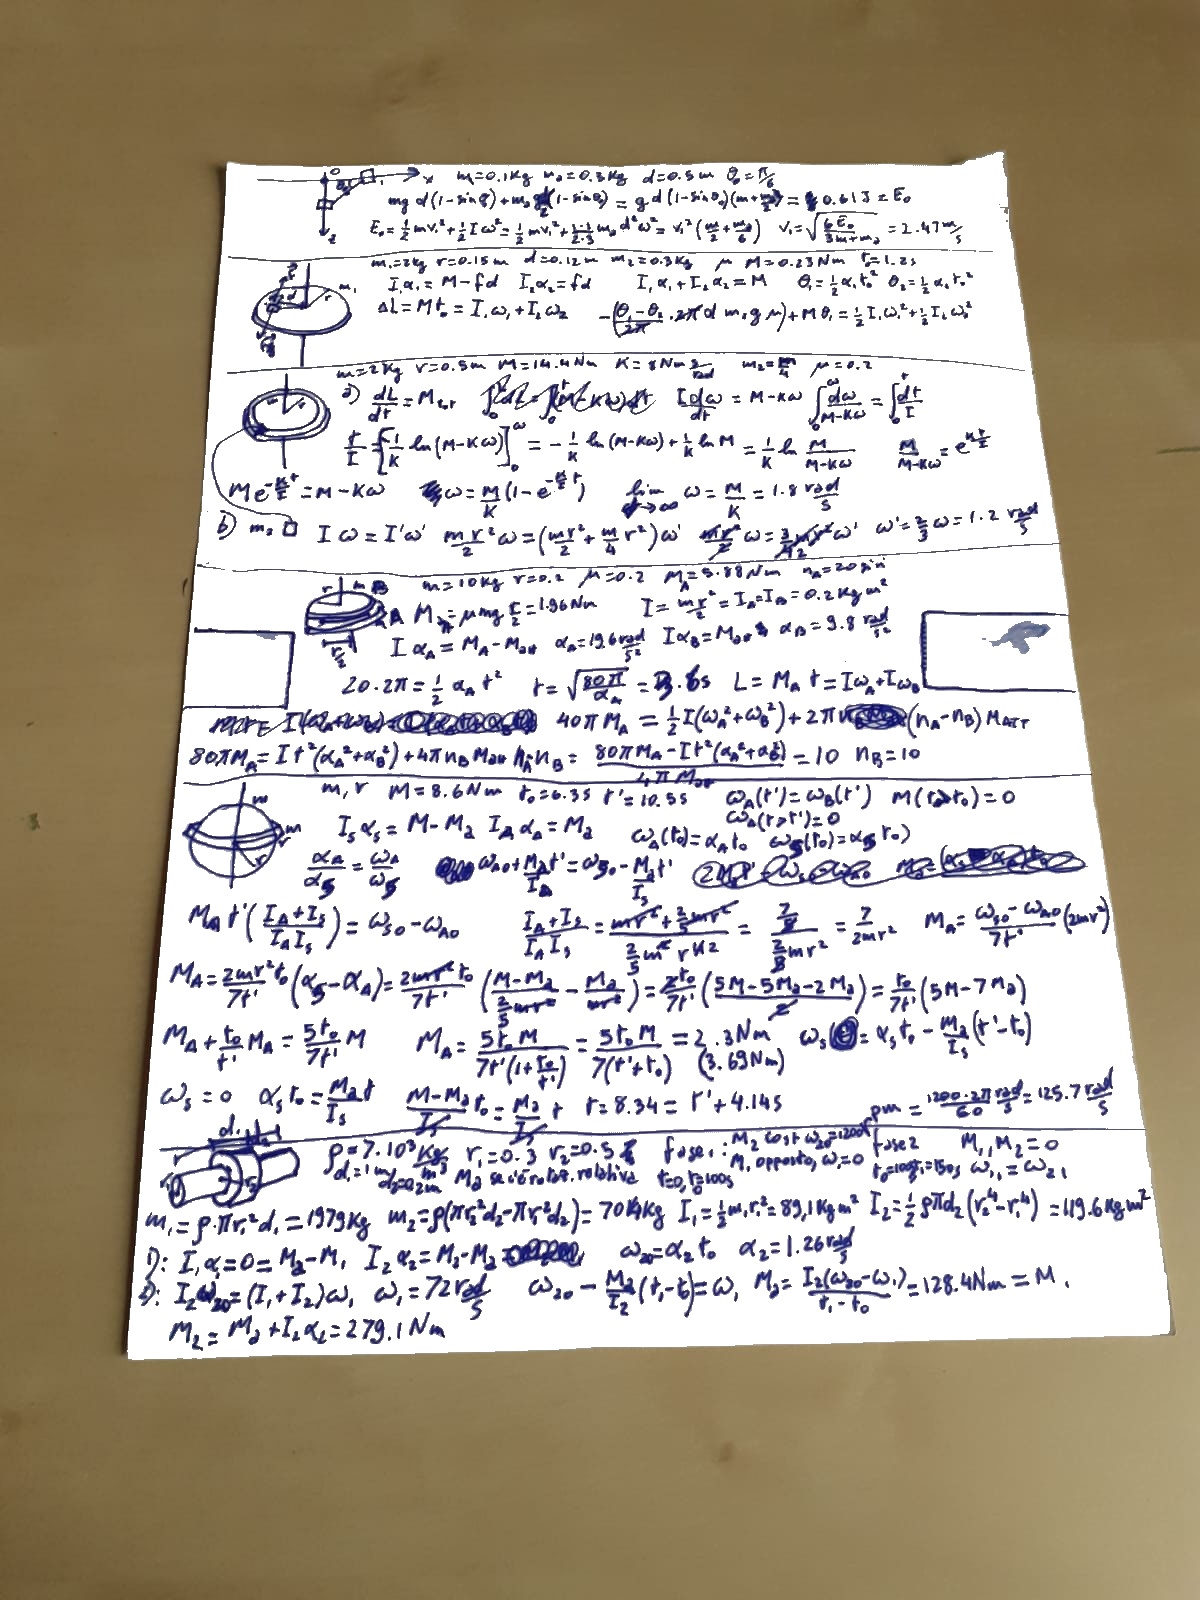 m=0.1Kg m₂=0.3Kg d=0.5m θ₀=π/6
mg d(1-sinθ₀)+m₂g d/2(1-sinθ₀) = g d(1-sinθ₀)(m+m₂/2) = 0.61J = E₀
E₀=½mv₁²+½Iω²=½mv₁²+½·⅓m₂d²ω²=v₁²(m/2+m₂/6) v₁=√(6E₀/(3m+m₂)) = 2.47m/s
m₁=2Kg r=0.15m d=0.12m m₂=0.3Kg μ M=0.23Nm t₀=1.2s
I₁α₁=M-fd I₂α₂=fd I₁α₁+I₂α₂=M θ₁=½α₁t₀² θ₂=½α₂t₀²
ΔL=Mt₀=I₁ω₁+I₂ω₂ -((θ₁-θ₂)/2π ·2πd m₂gμ)+Mθ₁=½I₁ω₁²+½I₂ω₂²
m=2Kg r=0.5m M=14.4Nm K=8Nm s/rad m₂=m/4 μ=0.2
a) dL/dt=Mtot I dω/dt=M-Kω ∫₀^ω dω/(M-Kω)=∫₀^t dt/I
t/I=[-1/K ln(M-Kω)]₀^ω=-1/K ln(M-Kω)+1/K ln M=1/K ln M/(M-Kω) M/(M-Kω)=e^(Kt/I)
Me^(-Kt/I)=M-Kω ω=M/K(1-e^(-Kt/I)) lim t→∞ ω=M/K=1.8 rad/s
b) m₂ Iω=I'ω' mr²/2 ω=(mr²/2+m/4 r²)ω' mr²/2 ω=3/4 mr² ω' ω'=2/3 ω=1.2 rad/s
m=10Kg r=0.2 μ=0.2 M_A=5.88Nm n_A=20giri
A M_att=μmg r/2=1.96Nm I=mr²/2=I_A=I_B=0.2Kgm²
Iα_A=M_A-Matt α_A=19.6rad/s² Iα_B=Matt α_B=9.8rad/s²
20·2π=½α_A t² t=√(80π/α_A)=3.6s L=M_A t=Iω_A+Iω_B
40πM_A=½I(ω_A²+ω_B²)+2π(n_A-n_B)Matt
80πM_A=It²(α_A²+α_B²)+4πn_BMatt n_A-n_B=(80πM_A-It²(α_A²+α_B²))/(4πMatt)=10 n_B=10
m,r M=8.6Nm t₀=6.3s t'=10.5s ω_A(t')=ω_B(t') M(t>t₀)=0
I_Sα_S=M-Ma I_Aα_A=Ma ω_A(t>t')=0
ω_A(t₀)=α_At₀ ω_S(t₀)=α_St₀
α_A/α_S=ω_A/ω_S ω_A0+Ma t'/I_A=ω_S0-Ma t'/I_S
M_A t'((I_A+I_S)/(I_AI_S))=ω_S0-ω_A0 (I_A+I_S)/(I_AI_S)=(mr²+2/5mr²)/(2/5m²r⁴)=(7/5)/(2/5mr²)=7/2mr² M_A=(ω_S0-ω_A0)/7t' (2mr²)
M_A=2mr²t₀/7t'(α_S-α_A)=2mr²t₀/7t'((M-Ma)/(2/5mr²)-Ma/mr²)=2t₀/7t'((5M-5Ma-2Ma)/2)=t₀/7t'(5M-7Ma)
M_A+t₀/t' M_A=5t₀/7t' M M_A=5t₀M/(7t'(1+t₀/t'))=5t₀M/(7(t'+t₀))=2.3Nm (3.69Nm) ω_S=α_St₀-Ma/I_S(t'-t₀)
ω_S=0 α_St₀=Ma/I_S t (M-Ma)/I_S t₀=Ma/I_S t t=8.34=t'+4.14s
rpm=1200·2π/60 rad/s=125.7rad/s
ρ=7·10³Kg/m³ r₁=0.3 r₂=0.5 fase1: M₂ cost ω₂₀=1200 fase2 M₁,M₂=0
d₁=1m d₂=0.2m Ma se c'è rotaz. relativa t=0, t₀=100s M₁ opposto, ω₁=0 t₀=100s t₁=150s ω₁₁=ω₂₁
m₁=ρ·πr₁²d₁=1979Kg m₂=ρ(πr₂²d₂-πr₁²d₂)=704Kg I₁=½m₁r₁²=89,1Kgm² I₂=½ρπd₂(r₂⁴-r₁⁴)=119.6Kgm²
1): I₁α₁=0=Ma-M₁ I₂α₂=M₂-Ma ω₂₀=α₂t₀ α₂=1.26rad/s
2): I₂ω₂₀=(I₁+I₂)ω₁ ω₁=72rad/s ω₂₀-Ma/I₂(t₁-t₀)=ω₁ Ma=I₂(ω₂₀-ω₁)/(t₁-t₀)=128.4Nm=M₁
M₂=Ma+I₂α₂=279.1Nm